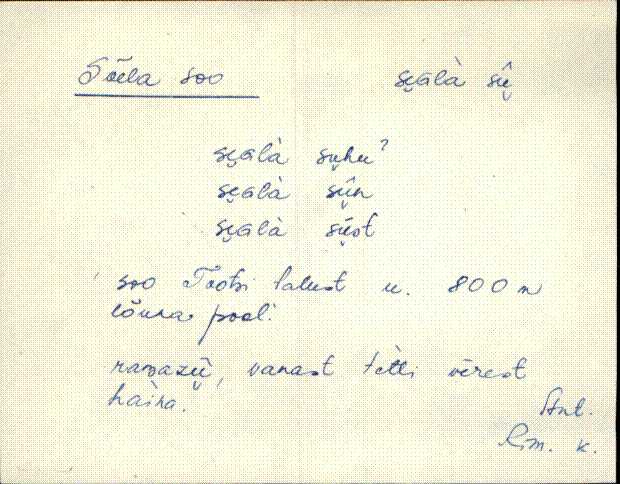 Sõela soo sęalà sū̬
sęalà su̬hu?
sęalà sū̬n
sęalà sū̬st
soo Tootsi talust u. 800 m
lõuna pool.
ramazū̬, vanast tètti vērest
hàina.
Ant.
Rim. k.